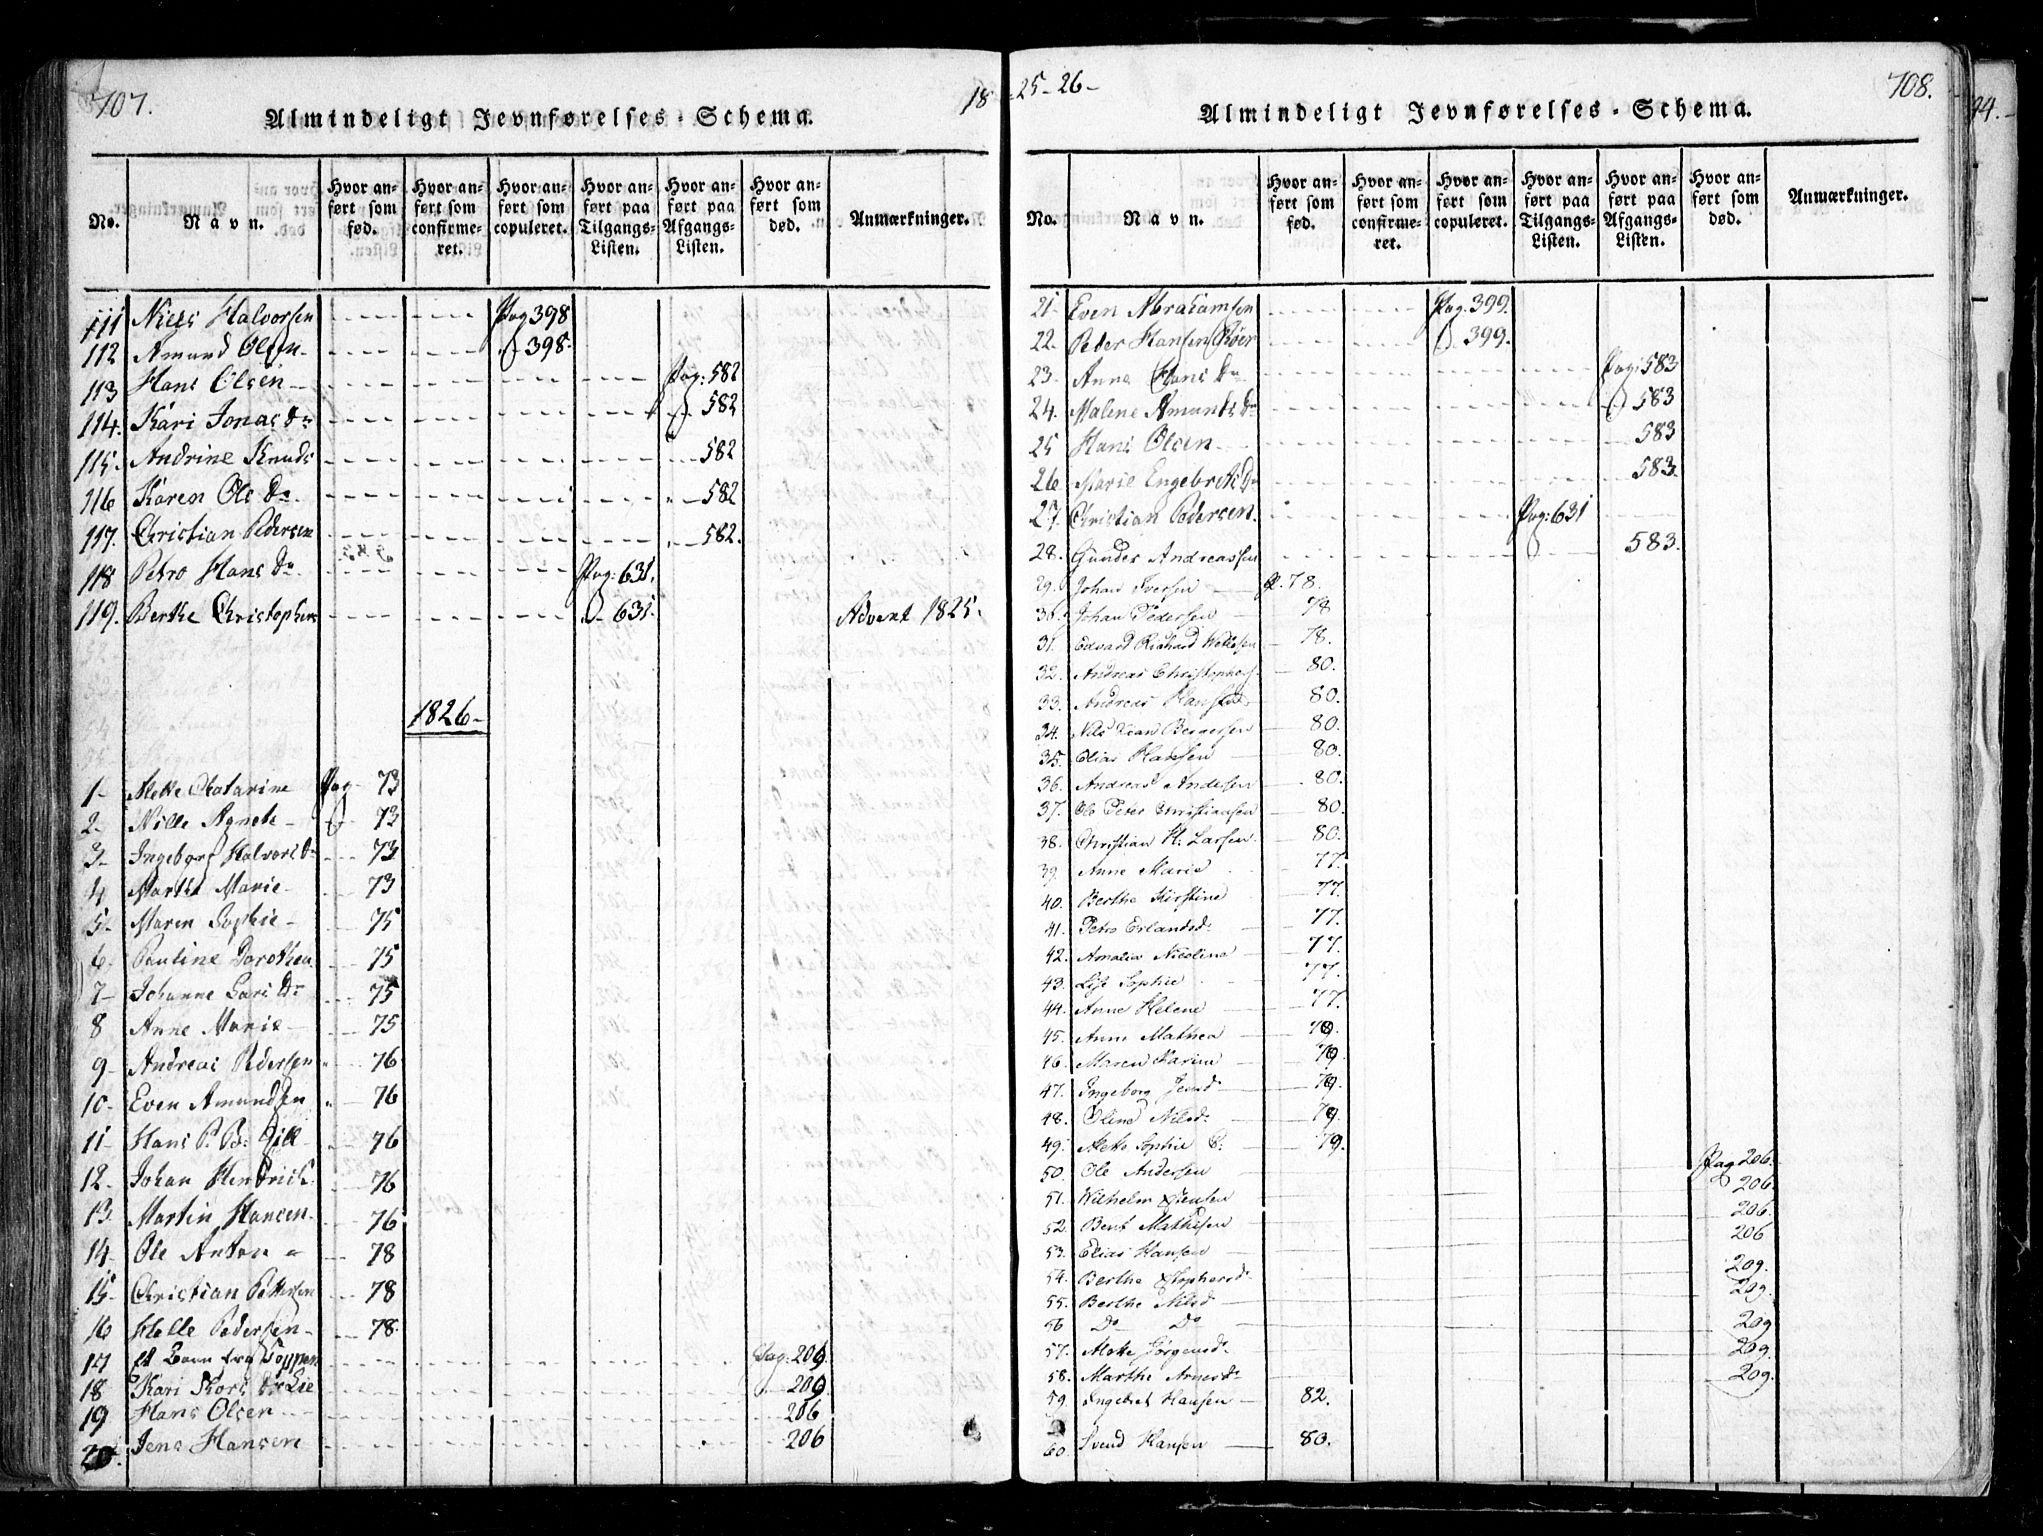 707.
Almindeligt Jevnførelses-Schema.
18
No.
Navn.
Hvor anført som fød.
Hvor anført som confirmeret.
Hvor anført som copuleret.
Hvor anført paa Tilgangs-Listen.
Hvor anført paa Afgangs-Listen.
Hvor anført som død.
Anmærkninger.
111 Niels Halvorsen Pag 398
112 Amund Olsen 398
113 Hans Olsen Pag: 582
114. Kari Jonas Dr 582
115. Andrine Knuds 582
116 Karen Ols Dr. 582
117. Christian Pedersen 582.
118 Petro Hans Dr. Pag: 631.
119. Berthe Christophers 631. Advent 1825.
1826
1 Mette Catarine Pag 73
2 Nille Agnete 73
3 Ingeborg Halvors Dr 73
4 Marthe Marie 73
5 Maren Sophie 75
6 Pauline Dorothea 75
7 Johanne Lars Dr 75
8 Anne Marie 75
9 Andreas Pedersen 76
10 Even Amundsen 76
11 Hans P. B: Gill 76
12 Johan Hendrich 76
13 Martin Hansen 76
14 Ole Anton 78
15 Christian Pettersen 78
16 Helle Pedersen 78
17 et Barn fra Toppen Pag. 209.
18 Kari Lars Dr Lie 209
19 Hans Olsen 206
20. Jens Hansen 206
25-26-
708.
Almindeligt Jevnførelses-Schema.
No.
Navn.
Hvor anført som fød.
Hvor anført som confirmeret.
Hvor anført som copuleret.
Hvor anført paa Tilgangs-Listen.
Hvor anført paa Afgangs-Listen.
Hvor anført som død.
Anmærkninger.
21 Even Abrahamsen Pag. 399.
22. Peder Hansen Röer 399.
23 Anne Hans Dr Pag: 583
24. Malene Amunds Dr 583
25 Hans Olsen 583
26 Marie Engebrets Dr 583.
27. Christian Pedersen. Pag: 631
28. Gunder Andreassen 583.
29. Johan Iversen P. 78.
30. Johan Pedersen 78
31. Edvard Richard Wettesen 78.
32. Andreas Christophers 80.
33. Andreas Hansen 80.
34. Nils Bernersen 80.
35. Elias Hansen 80.
36. Andreas Andersen 80.
37. Ole Peter Christiansen 80.
38. Christian H. Larsen 80.
39. Anne Marie 77.
40. Berthe Kirstine 77.
41. Petro Erlandsd. 77.
42. Amalia Nicolina 77.
43. Lise Sophie 77.
44. Anne Helene 77.
45. Anne Mathea 79.
46. Maren Karine 79.
47. Ingeborg Jensd 79.
48. Oline Nilsd. 79.
49. Mette Sophie C. 79.
50. Ole Andersen Pag 206.
51. Wilhelm Jensen 206
52. Bent Mathisen 206.
53. Elias Hansen 206
54. Berthe Xstophersd. 209.
55. Berthe Nilsd 209.
56 Do Do 209
57. Mette Jörgensd. 209.
58. Marthe Arnesd. 209.
59. Engebret Hansen 82.
60. Svend Hansen 80.
94.